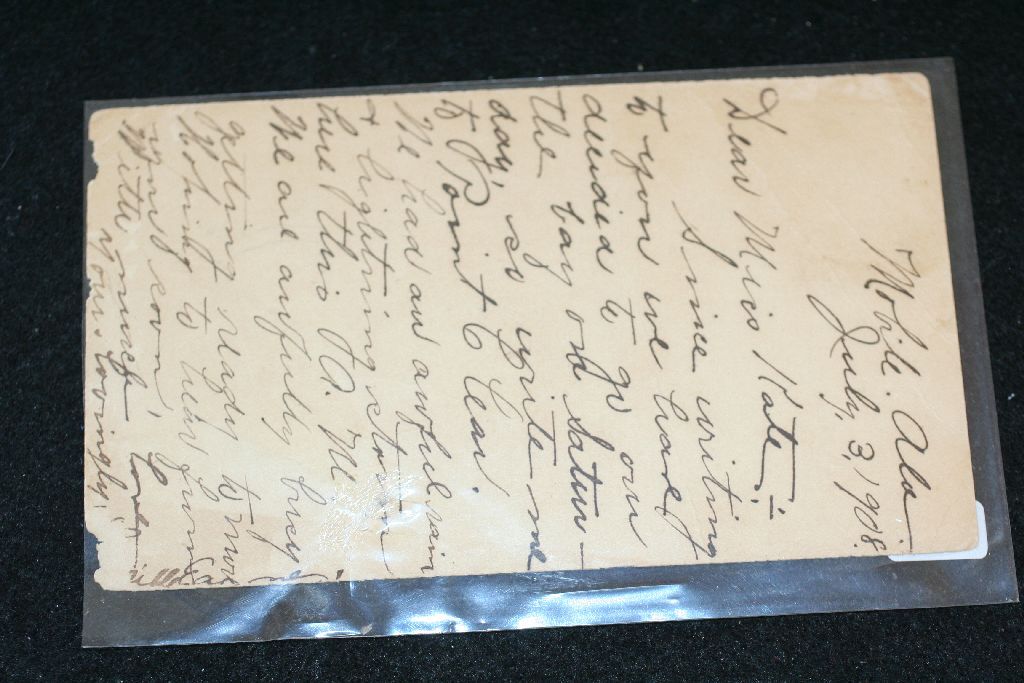 Mobile. Ala
July, 3, 1908.
Dear Miss Kate:-
Since writing
to you we have
decided to go over
the bay on Satur-
day, so write me
to Point Clear.
We had an awful rain
& lightning storm
here this P.M.
We are awfully busy
getting ready to move
Hoping to hear from
you soon,
With much love
Yours lovingly,